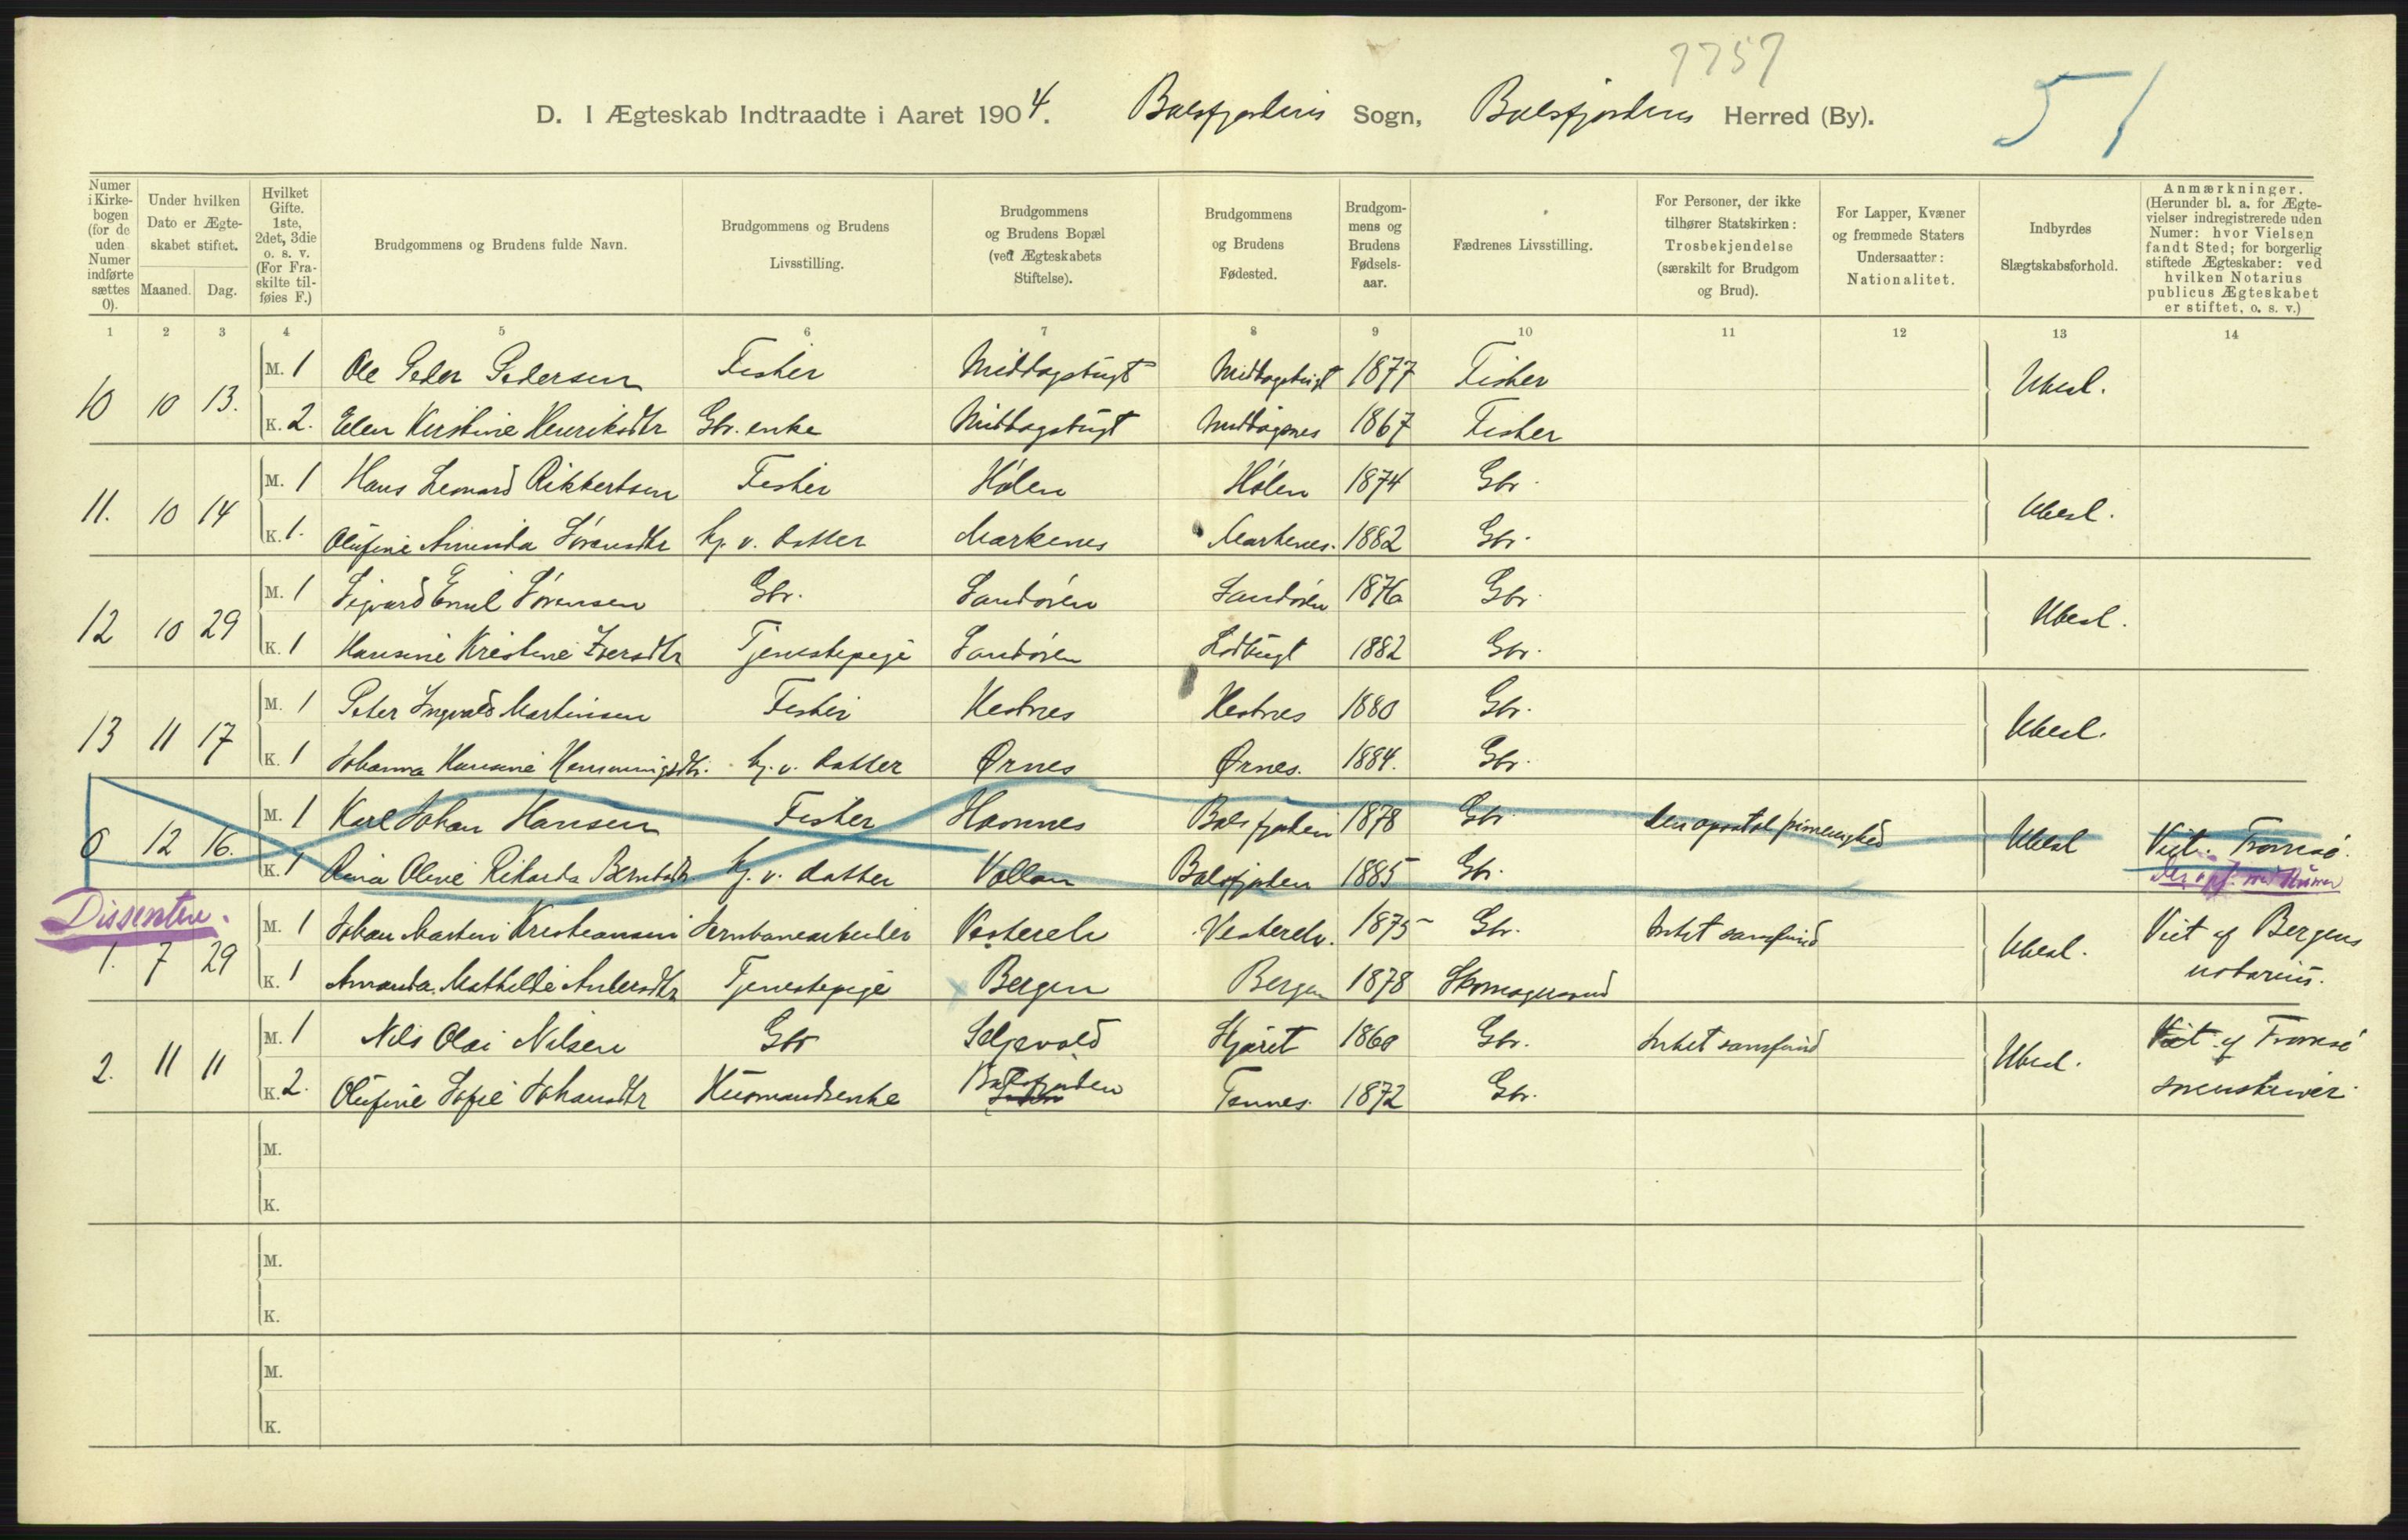 7757
51
D. I Ægteskab Indtraadte i Aaret 1904. Balsfjordens Sogn, Balsfjordens Herred (By).
Numer i Kirkebogen (for de uden Numer indførte sættes 0).
Under hvilken Dato er Ægteskabet stiftet.
Maaned. Dag.
Hvilket Gifte. 1ste, 2det, 3die o. s. v. (For Fraskilte tilføies F.)
Brudgommens og Brudens fulde Navn.
Brudgommens og Brudens Livsstilling.
Brudgommens og Brudens Bopæl (ved Ægteskabets Stiftelse).
Brudgommens og Brudens Fødested.
Brudgommens og Brudens Fødselsaar.
Fædrenes Livsstilling.
For Personer, der ikke tilhører Statskirken: Trosbekjendelse (særskilt for Brudgom og Brud).
For Lapper, Kvæner og fremmede Staters Undersaatter: Nationalitet.
Indbyrdes Slægtskabsforhold.
Anmærkninger. (Herunder bl. a. for Ægtevielser indregistrerede uden Numer: hvor Vielsen fandt Sted; for borgerlig stiftede Ægteskaber: ved hvilken Notarius publicus Ægteskabet er stiftet, o. s. v.)
1 2 3 4 5 6 7 8 9 10 11 12 13 14
10 10 13. M. 1 Ole Peder Pedersen Fisker Middagsbugt Middagsbugt 1877 Fisker Ubesl.
K. 2. Elen Kirstine Henriksdtr Gbr. enke Middagsbugt Middagsnes 1867 Fisker
11. 10 14 M. 1 Hans Leonard Rikkertsen Fisker Hølen Hølen 1874 Gbr. Ubesl.
K. 1. Olufine Aminda Sørensdtr hj. v. datter Markenes Markenes. 1882 Gbr.
12 10 29 M. 1 Sigvard Emil Sørensen Gbr. Sandøren Sandøren 1876 Gbr. Ubesl.
K. 1 Hansine Kristine Iversdtr Tjenestepige Sandøren Lodbugt 1882 Gbr.
13 11 17 M. 1 Peter Ingvald Martinsen Fisker Hestnes Hestnes 1880 Gbr. Ubesl.
K. 1 Johanna Hansine Henningsdtr. hj. v. datter Ørnes Ørnes. 1884. Gbr.
0 12 16. M. 1 Karl Johan Hansen Fisker Hamnes Balsfjorden 1878 Gbr. den apostol. frimenighed Ubesl Viet i Tromsø.
K. 1 Olive Rikarda Berntsdtr hj. v. datter Vollan Balsfjorden 1885 Gbr.
Dissentere.
1. 7 29 M. 1 Johan Martin Kristiansen Jernbanearbeider Vesterelv Vesterelv. 1875 Gbr. Intet samfund Ubesl. Viet af Bergens
K. 1 Amanda Mathilde Andersdtr Tjenestepige Bergen Bergen 1878 Skomagersvend notarius.
2. 11 11 M. 1 Nils Olai Nilsen Gbr Seljevold Skjæret 1860 Gbr. Intet samfund Ubesl. Viet af Tromsø
K. 2. Olufine Sofie Johansdtr Husmandsenke Balsfjorden Tennes. 1872 Gbr. sorenskriver.
M.
K.
M.
K.
M.
K.